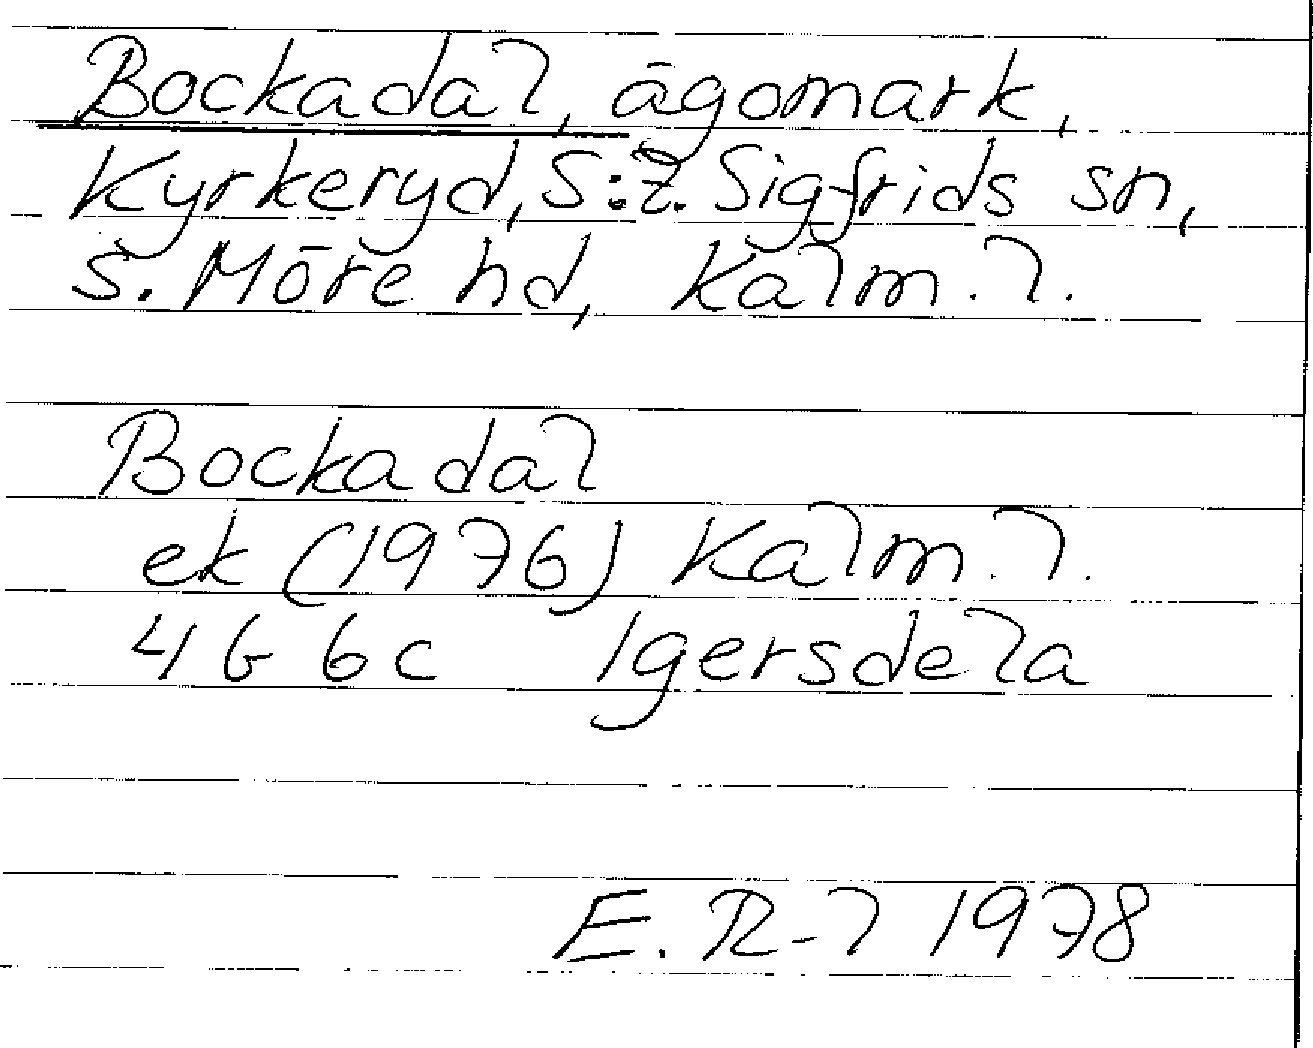 Bockadal, ägomark,
Kyrkeryd, S:t. Sigfrids sn,
S. Möre hd, Kalm. l.
Bockadal
ek (1976) Kalm. l.
4G 6c Igersdela
E. R-l 1978